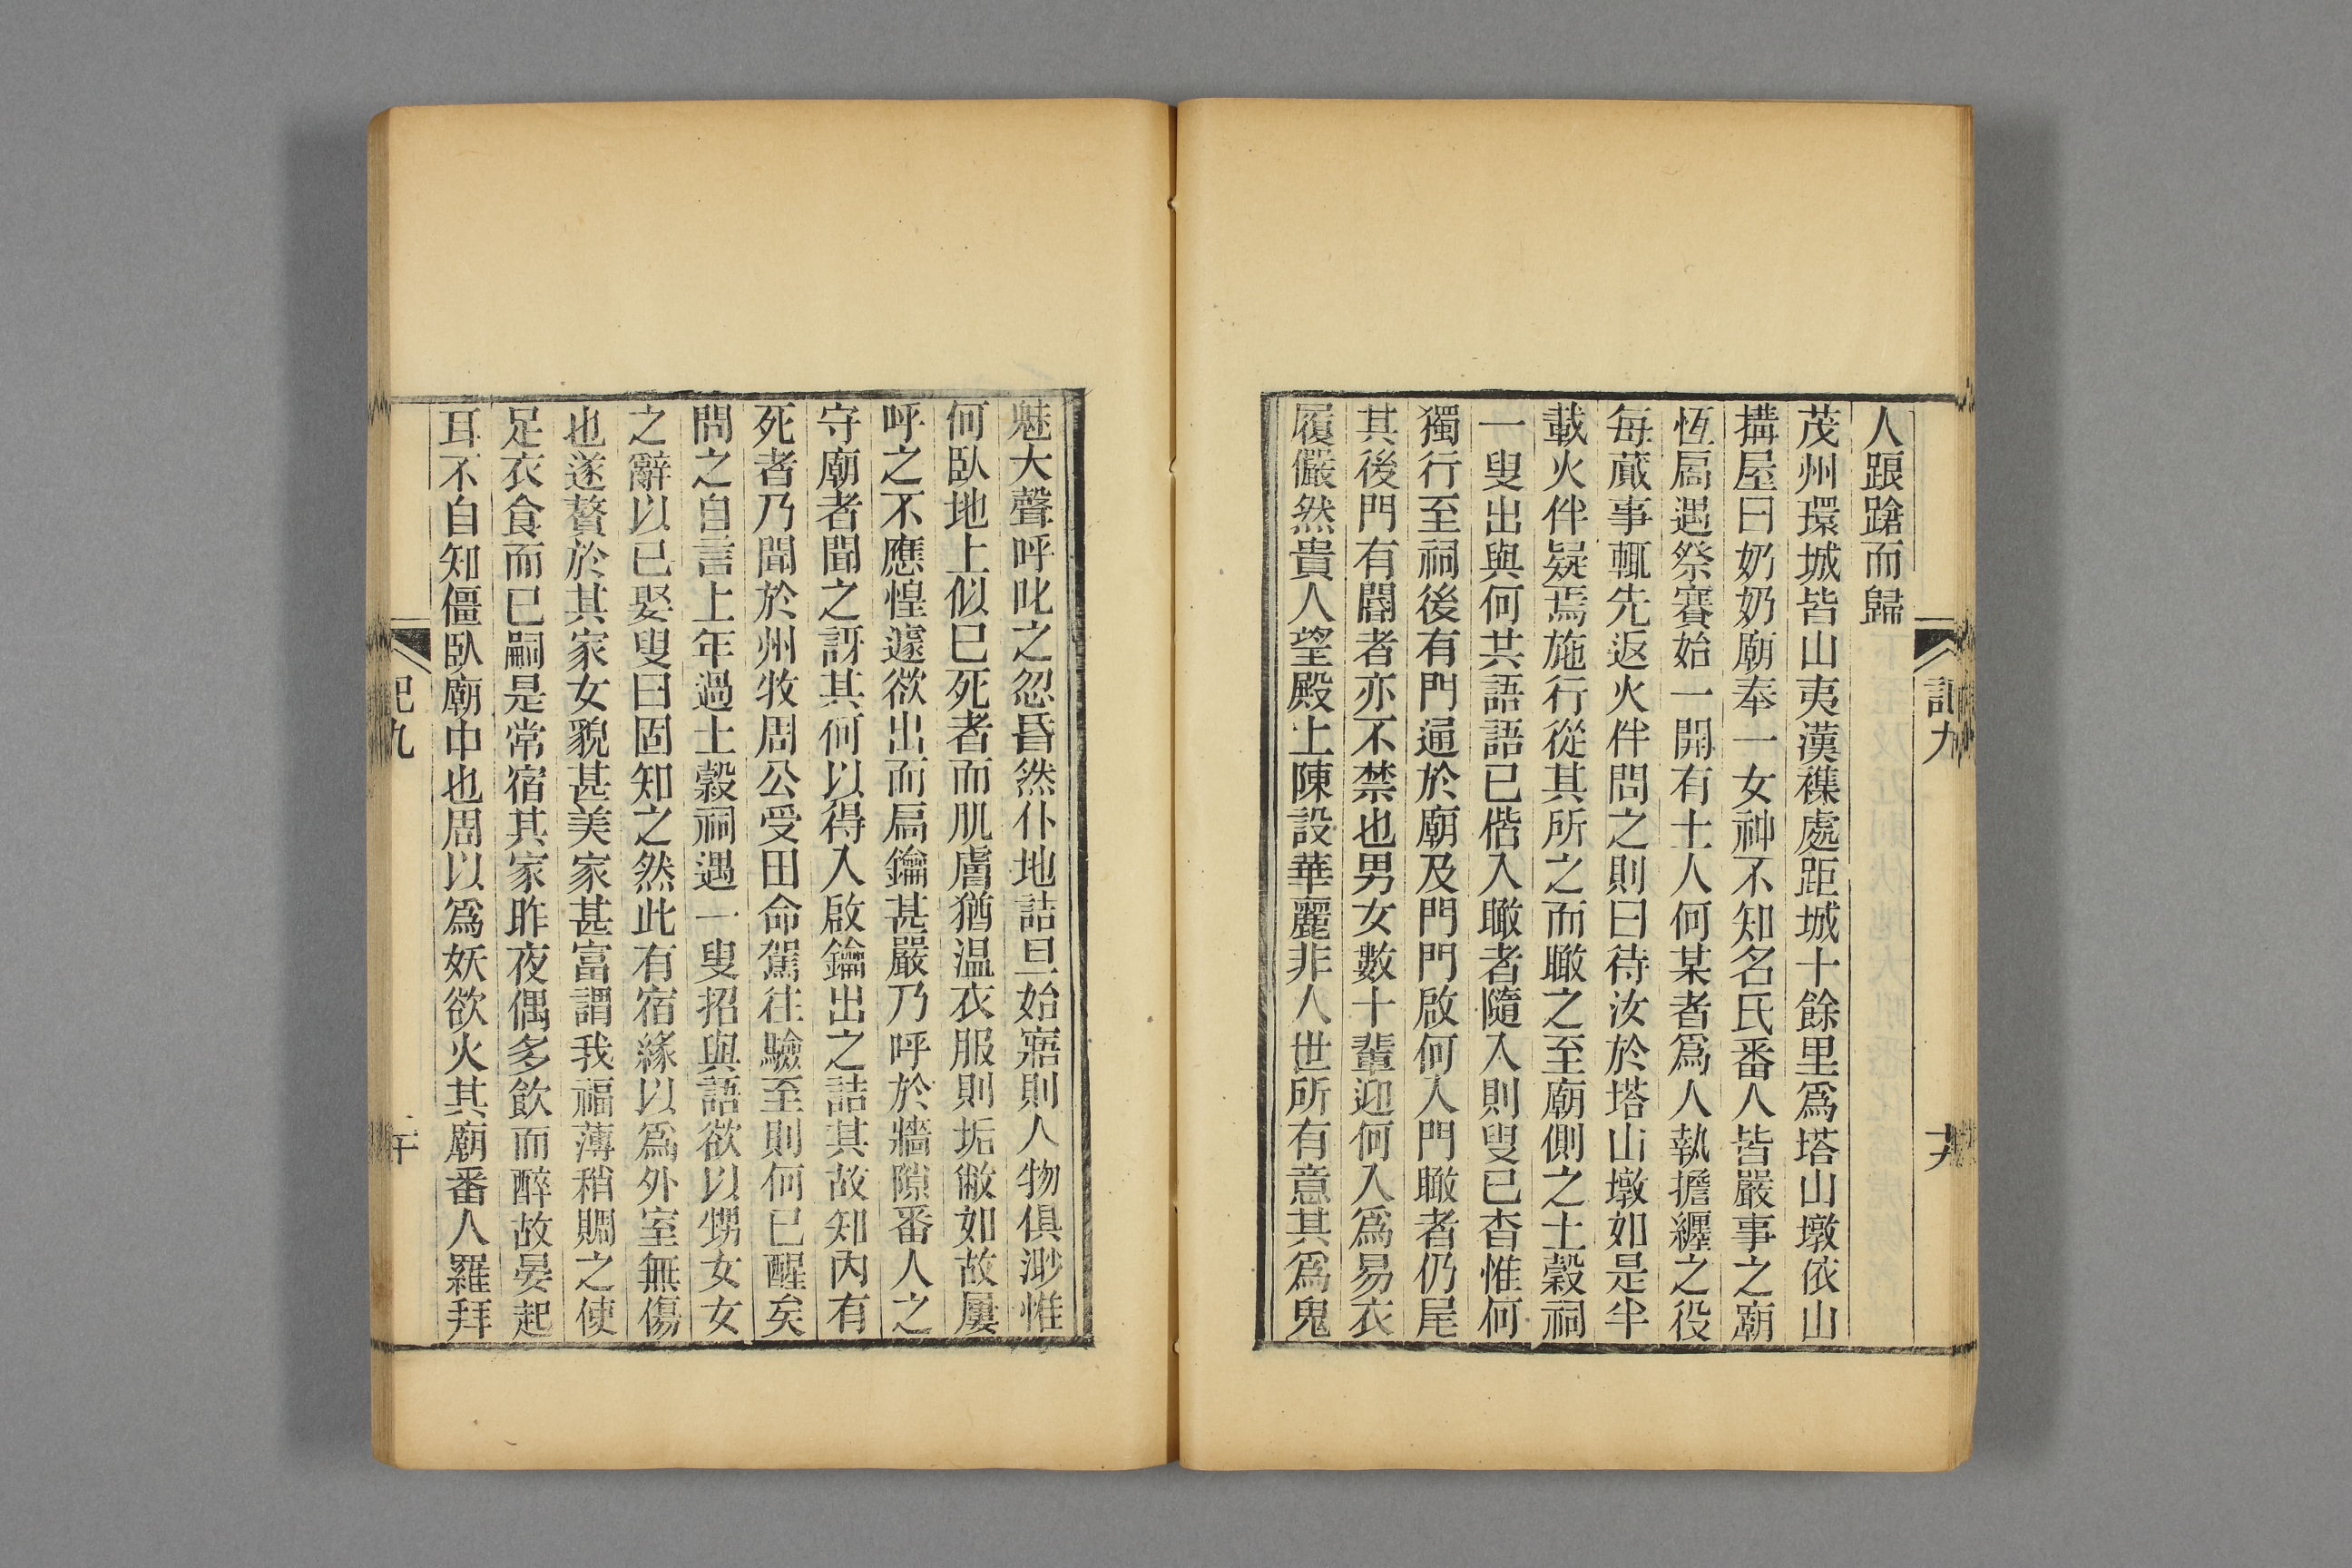 記九
十九
人踉蹌而歸
茂州環城皆山夷漢襍處距城十餘里爲塔山墩依山
搆屋曰奶奶廟奉一女神不知名氏番人皆嚴事之廟
恆扃遇祭賽始一開有士人何某者爲人執擔纏之役
每蕆事輒先返火伴問之則曰待汝於塔山墩如是半
載火伴疑焉施行從其所之而瞰之至廟側之土穀祠
一叟出與何共語語已偕入瞰者隨入則叟已杳惟何
獨行至祠後有門通於廟及門門啟何入門瞰者仍尾
其後門有閽者亦不禁也男女數十輩迎何入爲易衣
履儼然貴人望殿上陳設華麗非人世所有意其爲鬼
魅大聲呼叱之忽昏然仆地詰旦始寤則人物俱渺惟
何臥地上似已死者而肌膚猶温衣服則垢敝如故屢
呼之不應惶遽欲出而扃鑰甚嚴乃呼於牆隙番人之
守廟者聞之訝其何以得入啟鑰出之詰其故知內有
死者乃聞於州牧周公受田命駕往驗至則何已醒矣
問之自言上年過土穀祠遇一叟招與語欲以甥女女
之辭以已娶叟曰固知之然此有宿緣以爲外室無傷
也遂贅於其家女貌甚美家甚富謂我福薄稍賙之使
足衣食而已嗣是常宿其家昨夜偶多飲而醉故晏起
耳不自知僵臥廟中也周以爲妖欲火其廟番人羅拜
記九